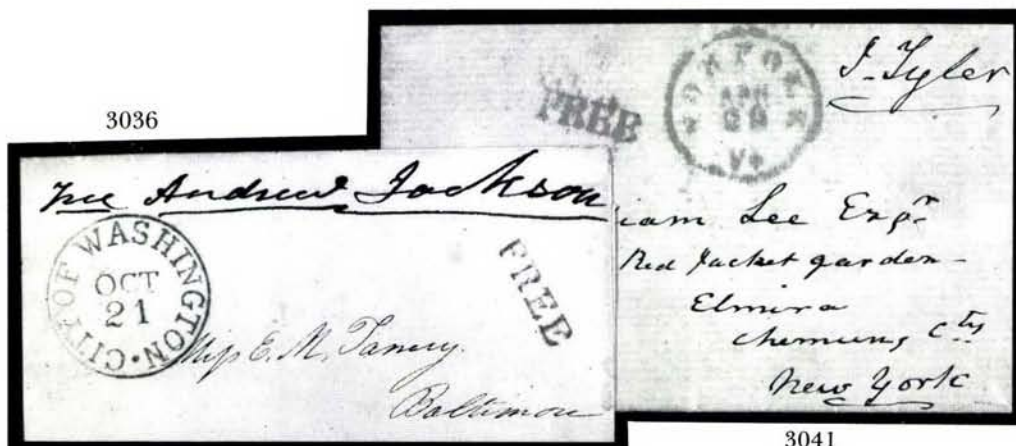 3036
Free Andrew Jackson
CITY OF WASHINGTON
OCT
21
FREE
Miss E. M. Taney.
Baltimore
FREE
NORFOLK
APR
Va
J. Tyler
iam Lee Esqr.
Red Jacket garden
Elmira
Chemung Cty
New York
3041